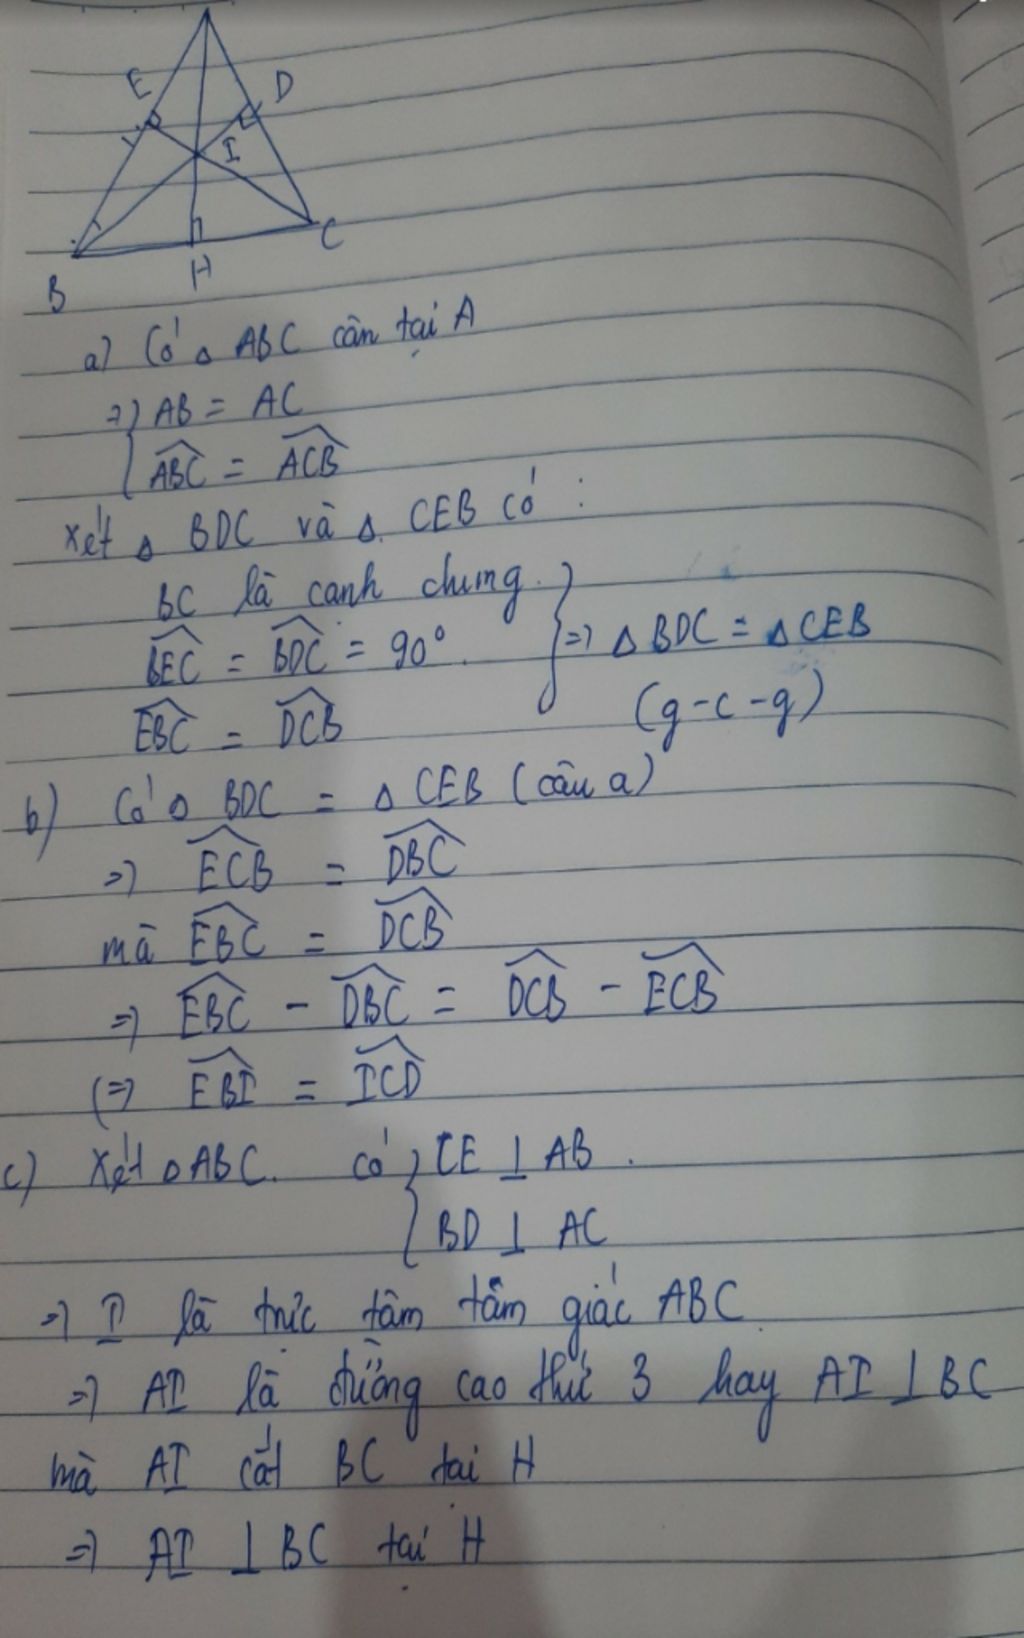 E
D
I
C
B
H
a) Có △ ABC cân tại A
=> { AB = AC
ABC = ACB
Xét △ BDC và △ CEB có :
BC là cạnh chung
BEC = BDC = 90° } => △ BDC = △ CEB
EBC = DCB (g-c-g)
b) Có △ BDC = △ CEB (câu a)
=> ECB = DBC
mà EBC = DCB
=> EBC - DBC = DCB - ECB
(=> EBI = ICD
c) Xét △ ABC. có { CE ⊥ AB.
BD ⊥ AC
=> I là trực tâm tâm giác ABC
=> AI là đường cao thứ 3 hay AI ⊥ BC
mà AI cắt BC tại H
=> AI ⊥ BC tại H